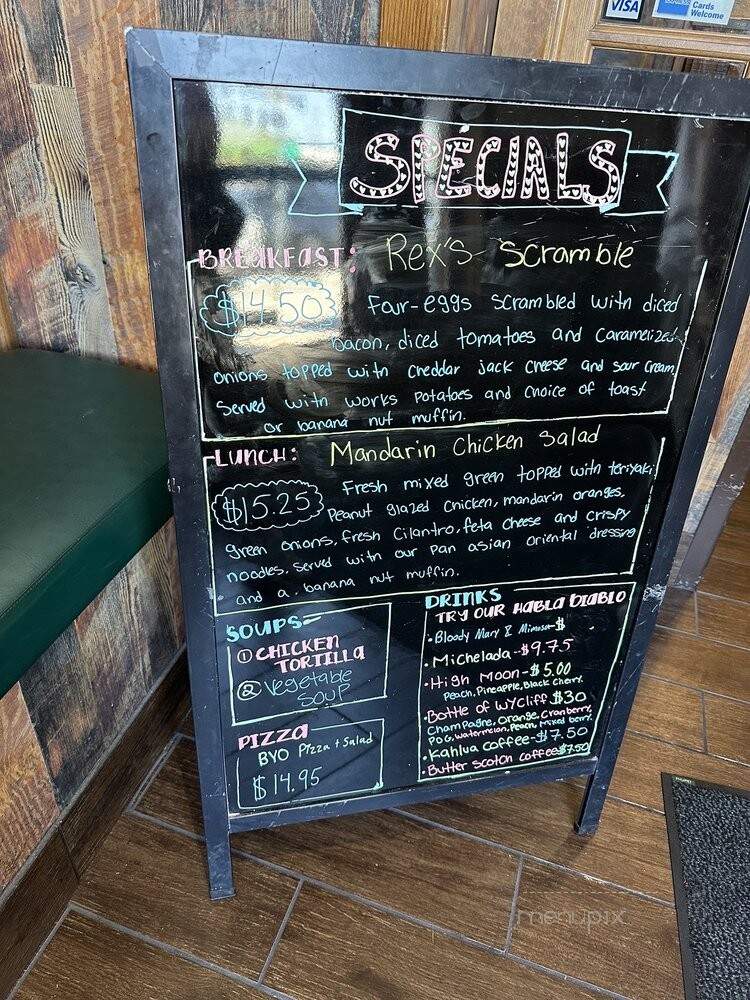 VISA
Cards
Welcome
SPECIALS
BREAKFAST: Rex's Scramble
$14.50 Four-eggs scrambled with diced
bacon, diced tomatoes and Caramelized
onions topped with cheddar jack cheese and sour cream,
Served with works Potatoes and choice of toast
or banana nut muffin.
LUNCH: Mandarin Chicken Salad
$15.25 Fresh mixed green topped with teriyaki
Peanut glazed chicken, mandarin oranges,
green onions, fresh Cilantro, feta cheese and crispy
noodles, served with our pan asian oriental dressing
and a banana nut muffin.
SOUPS
① CHICKEN
TORTILLA
② Vegetable
SOUP
PIZZA
BYO Pizza + Salad
$14.95
DRINKS
TRY OUR HABLA DIABLO
• Bloody Mary & Mimosa-$
• Michelada-$9.75
• High Moon-$5.00
Peach, Pineapple, Black Cherry.
• Bottle of WYCliff $30
Champagne, Orange, Cranberry,
POG, Watermelon, Peach, Mixed berry.
• Kahlua coffee-$7.50
• Butter Scotch coffee$7.50
menupix